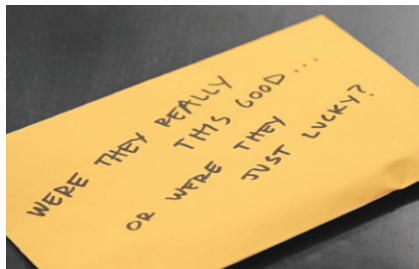 WERE THEY REALLY
THIS GOOD...
OR WERE THEY
JUST LUCKY?